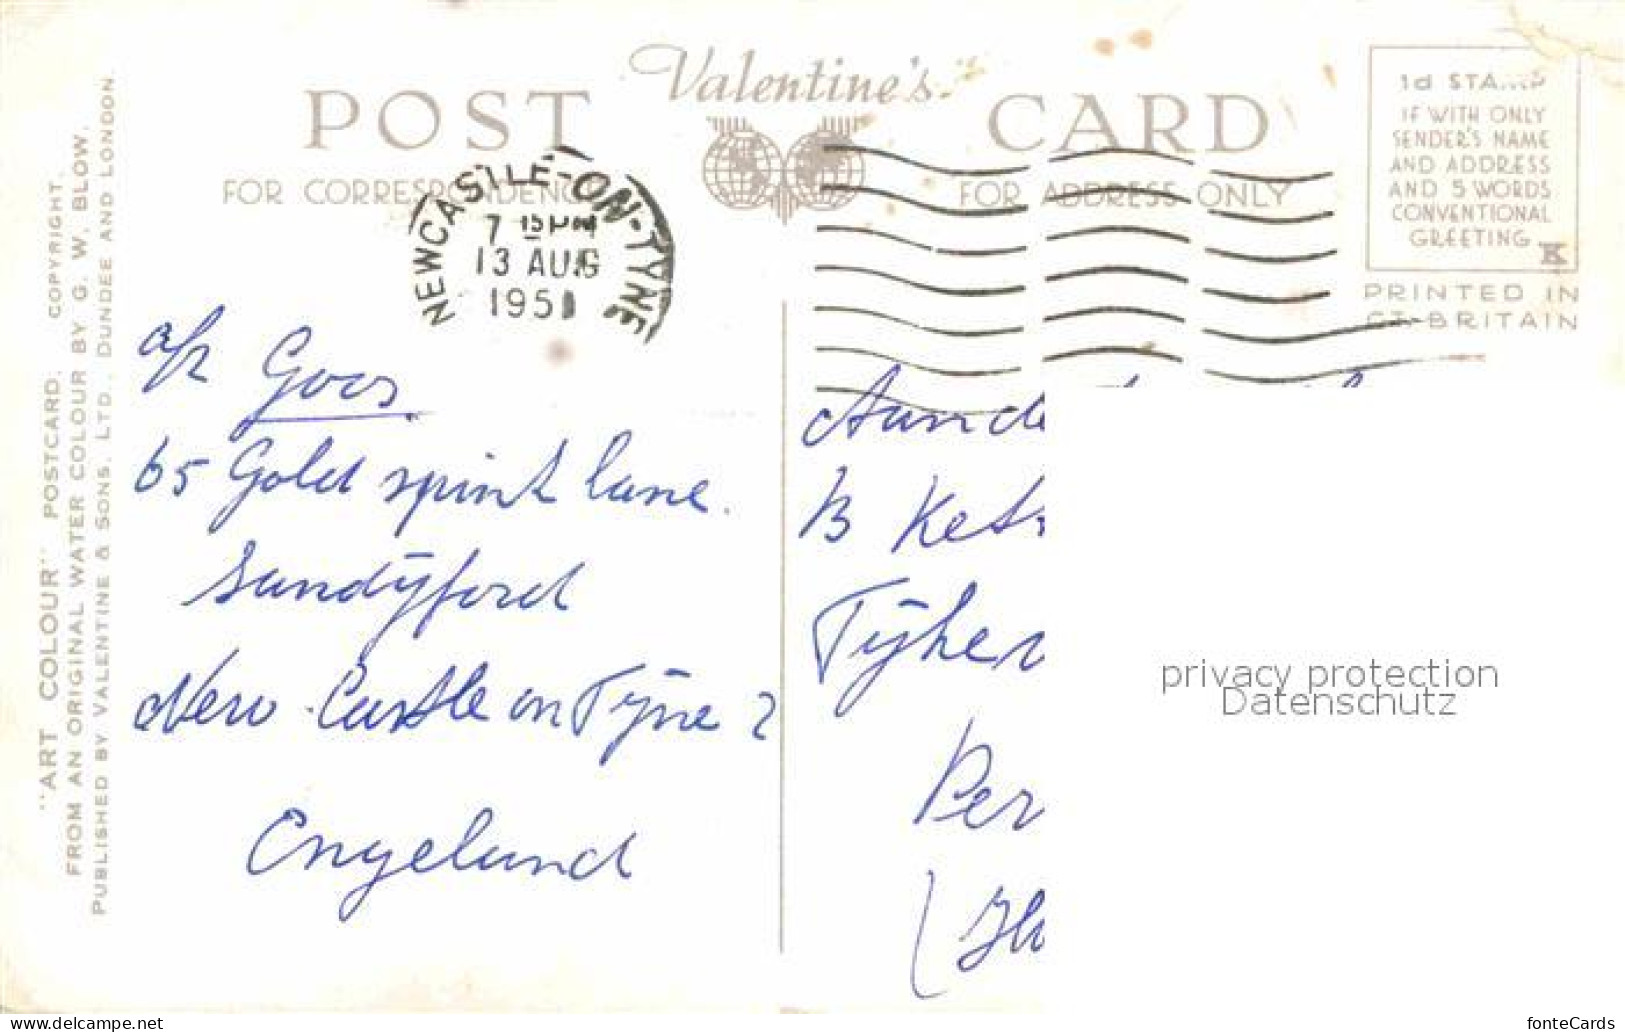 Valentine's
POST CARD
FOR CORRESPONDENCE
FOR ADDRESS ONLY
1d STAMP
IF WITH ONLY
SENDER'S NAME
AND ADDRESS
AND 5 WORDS
CONVENTIONAL
GREETING
PRINTED IN
GT. BRITAIN
NEWCASTLE-ON-TYNE
7 15 PM
13 AUG
1951
"ART COLOUR" POSTCARD. COPYRIGHT.
FROM AN ORIGINAL WATER COLOUR BY G. W. BLOW.
PUBLISHED BY VALENTINE & SONS, LTD., DUNDEE AND LONDON.
Goos.
65 Gold spink lane.
Sandyford
New Castle on Tyne 2
Engeland
Aan de
B Ket
Tijker
Per
privacy protection
Datenschutz
https://www.delcampe.net
fonteCards